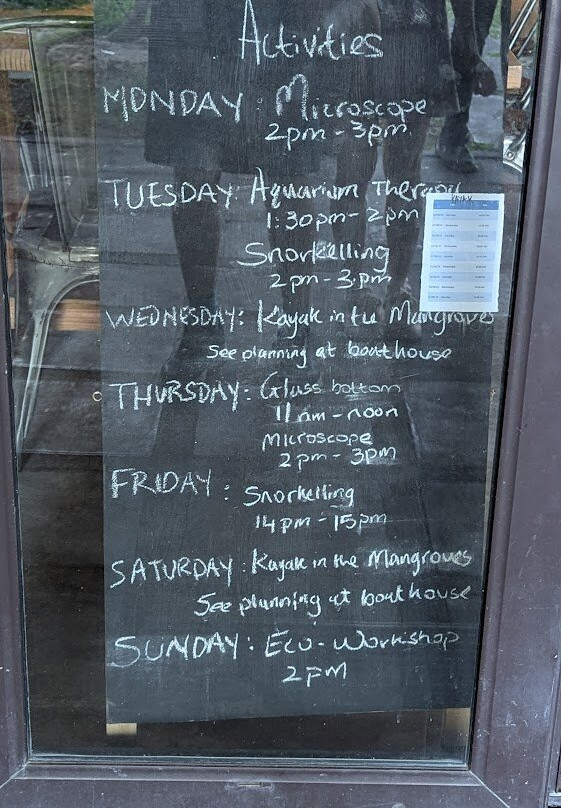 Activities
MONDAY: Microscope
2pm - 3pm
TUESDAY: Aquarium Therapy
1:30pm - 2pm
Snorkelling
2pm - 3pm
WEDNESDAY: Kayak in the Mangroves
See planning at boathouse
THURSDAY: Glass bottom
11am - noon
Microscope
2pm - 3pm
FRIDAY: Snorkelling
14pm - 15pm
SATURDAY: Kayak in the Mangroves
See planning at boathouse
SUNDAY: Eco-Workshop
2PM